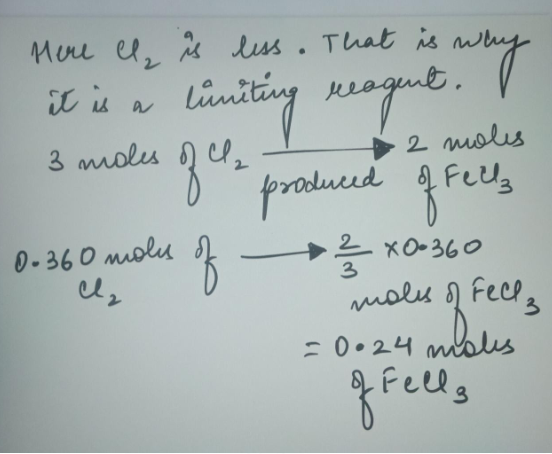 Here Cl₂ is less. That is why
it is a limiting reagent.
3 moles of Cl₂ → 2 moles
produced of FeCl₃
0.360 moles of → 2/3 × 0.360
Cl₂
moles of FeCl₃
= 0.24 moles
of FeCl₃